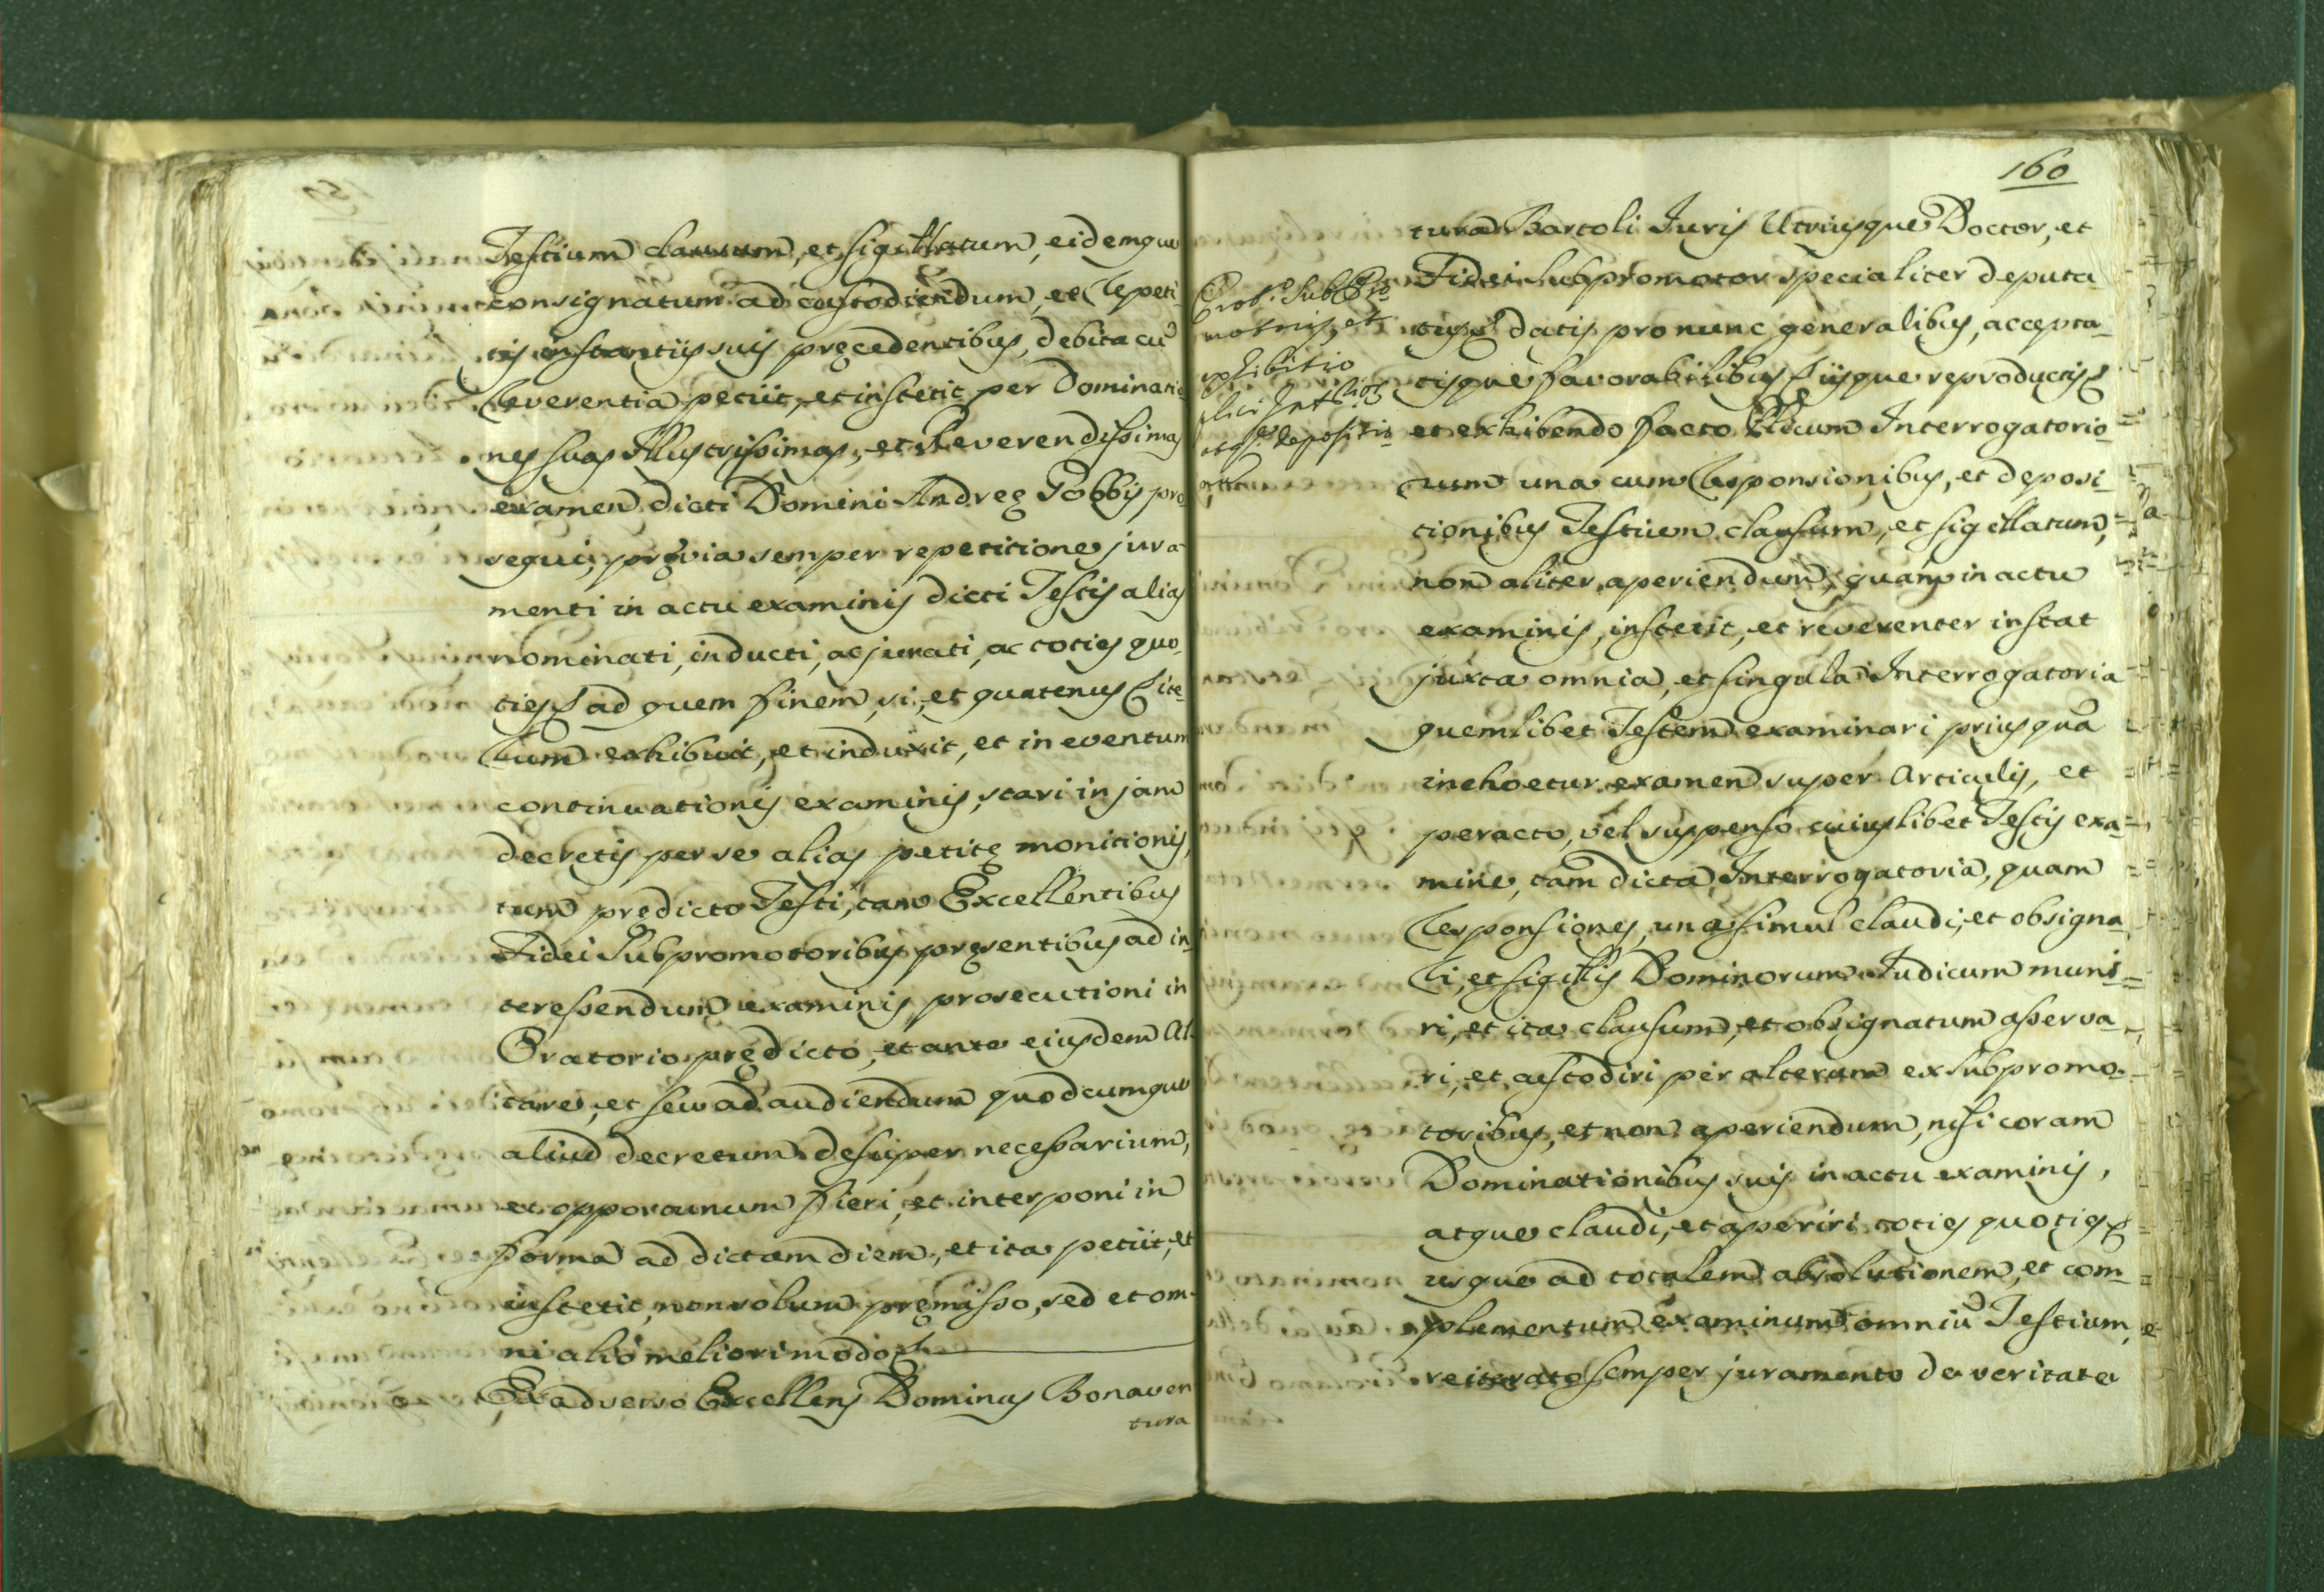 Testium clausum, et sigillatum, eidemque
consignatum ad custodiendum, et repeti-
tis instantijs suis pręcedentibus, debita cũ
reverentia petijt, et institit per Dominatio
nes suas Illustrissimas, et Reverendissimas
examen dicti Domini Andreę Gobbij pro
sequi, pręvia semper repetitione jura
menti in actu examinis dicti Testis alias
nominati, inducti, ac jurati, ac toties quo
ties ad quem finem, si, et quatenus
exhibuit, et induxit, et in eventum
continuationis examinis, stari in jam
decretis per se alias petitę monitionis,
tum prędicto Testi, tam Excellentibus
Fidei Subpromotoribus pręsentibus ad in
teressendum examinis prosecutioni in
Oratorio prędicto, et ante eiusdem Al-
tare, et seu ad audiendum quodcumque
aliud decretum desuper necessarium,
et opportunum fieri, et interponi in
forma ad dictam diem, et ita petijt, et
institit, non solum pręmisso, sed et om-
ni alio meliori modo
Ex adverso Excellens Dominus Bonaven
tura
160
tura Bartoli Juris Utriusque Doctor, et
Fidei Subpromotor specialiter deputa
tus datis pro nunc generalibus, accepta-
tisque favorabilibus, ijsque reproductis
et exhibendo facto Interrogatorio-
rum una cum responsionibus, et deposi-
tionibus Testium clausum, et sigillatum,
non aliter aperiendum, quam in actu
examinis, institit, et reverenter instat
juxta omnia, et singula Interrogatoria
quemlibet Testem examinari prius quã
inchoetur examen super Articulis, et
peracto, vel suspenso cuiuslibet Testis exa-
mine, tam dicta Interrogatoria, quam
responsiones, una simul claudi, et obsigna
ri, et sigillis Dominorum Judicum muni-
ri, et ita clausum, et obsignatum asserva
ri, et custodiri per alterum ex subpromo-
toribus, et non aperiendum, nisi coram
Dominationibus suis in actu examinis,
atque claudi, et aperiri toties quoties
usque ad totalem absolutionem, et com-
plementum examinum omniũ Testium,
reiterato semper juramento de veritate
motoris, et
exhibitio